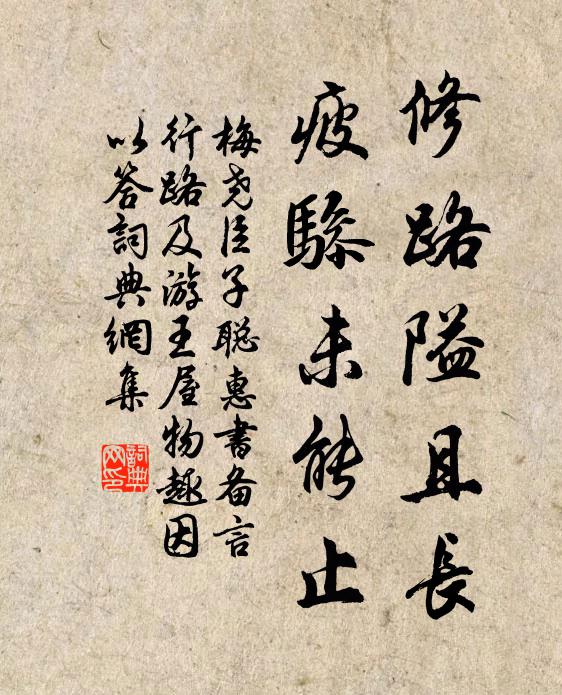 修路隘且長
瘦驂未能止
梅尧臣子聪惠書备言
行路及游王屋物趣因
以答詞典網集
詞典網印